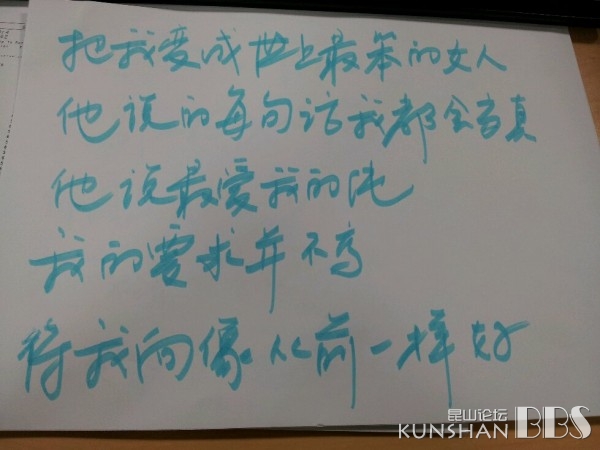 把我变成世上最笨的女人
他说的每句话我都会当真
他说最爱我的唇
我的要求并不高
待我向像从前一样好
昆山论坛
KUNSHAN BBS